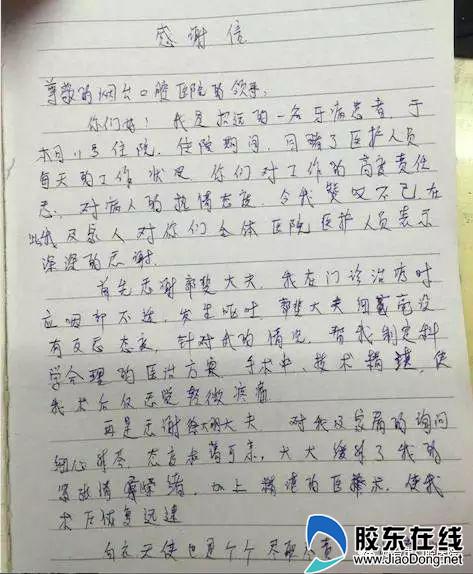 感谢信
尊敬的烟台口腔医院的领导：
你们好！我是招远的一名牙病患者 于
本月11号住院，住院期间，目睹了医护人员
每天的工作状况 你们对工作的高度责任
感、对病人的热情态度，令我赞叹不已在
此我及家人对你们全体医院医护人员表示
深深的感谢.
首先感谢郭斐大夫，我在门诊治疗时
应咽部不适，发生呕吐，郭斐大夫细毫没
有反感态度，针对我的情况，帮我制定科
学合理的医治方案，手术中，技术精湛，使
我术后仅感觉轻微疼痛
再是感谢徐大明大夫 对我及家属的询问
细心解答，态度和蔼可亲，大大缓解了我的
紧张情绪，加上精湛的医术，使我
术后恢复迅速
白衣天使也是个个尽职尽责
胶东在线
www.JiaoDong.net